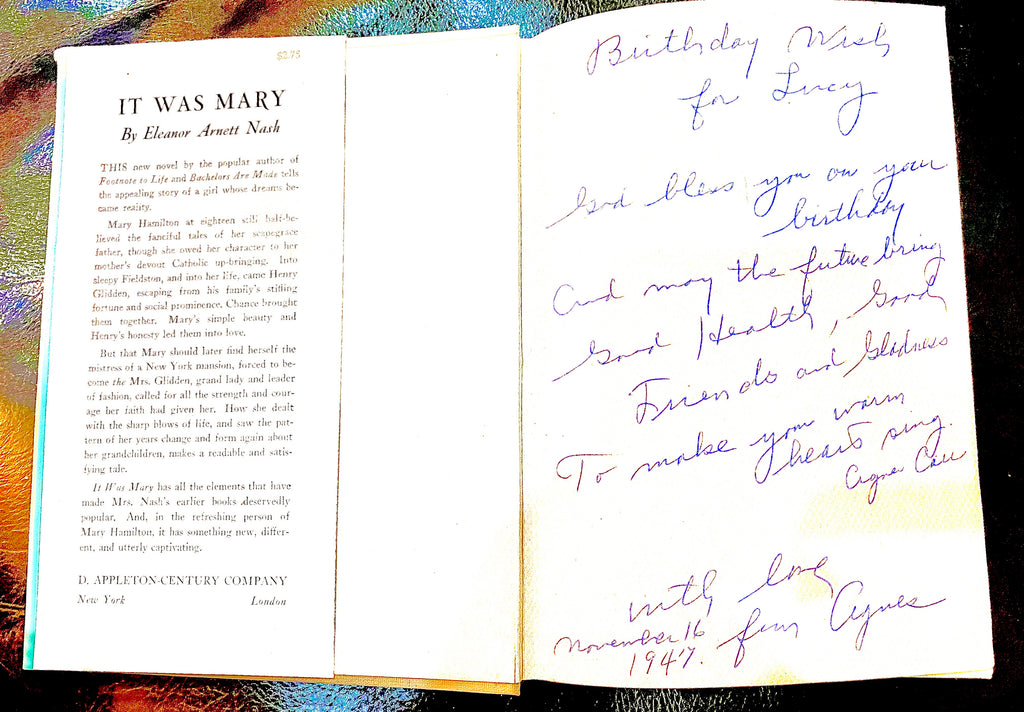 $2.75
IT WAS MARY
By Eleanor Arnett Nash
THIS new novel by the popular author of
Footnote to Life and Bachelors Are Made tells
the appealing story of a girl whose dreams be-
came reality.
Mary Hamilton at eighteen still half-be-
lieved the fanciful tales of her scapegrace
father, though she owed her character to her
mother's devout Catholic up-bringing. Into
sleepy Fieldston, and into her life, came Henry
Glidden, escaping from his family's stifling
fortune and social prominence. Chance brought
them together. Mary's simple beauty and
Henry's honesty led them into love.
But that Mary should later find herself the
mistress of a New York mansion, forced to be-
come the Mrs. Glidden, grand lady and leader
of fashion, called for all the strength and cour-
age her faith had given her. How she dealt
with the sharp blows of life, and saw the pat-
tern of her years change and form again about
her grandchildren, makes a readable and satis-
fying tale.
It Was Mary has all the elements that have
made Mrs. Nash's earlier books deservedly
popular. And, in the refreshing person of
Mary Hamilton, it has something new, differ-
ent, and utterly captivating.
D. APPLETON-CENTURY COMPANY
New York London
Birthday Wish
for Lucy
God bless you on your
birthday
And may the future bring
Good Health, Good
Friends and Gladness
To make your warm
hearts sing.
Agnes
with love
from Agnes
November 16
1947.